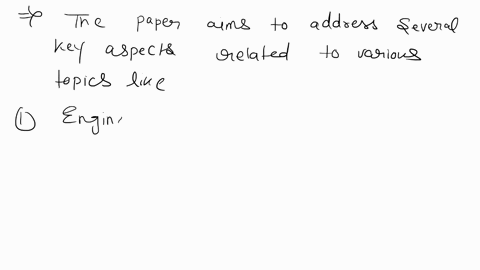 ⇒ The paper aims to address several
key aspects related to various
topics like
① Engin